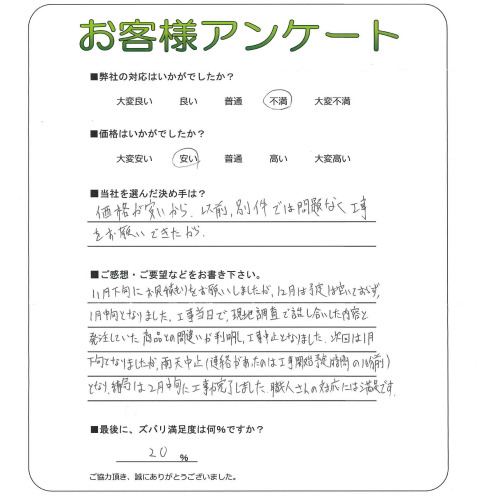 お客様アンケート
■弊社の対応はいかがでしたか？
大変良い 良い 普通 不満 大変不満
■価格はいかがでしたか？
大変安い 安い 普通 高い 大変高い
■当社を選んだ決め手は？
価格が安いから．以前，別件では問題なく工事
をお願いできたから．
■ご感想・ご要望などをお書き下さい。
11月下旬にお見積もりをお願いしましたが，12月は予定は空いておらず，
1月中旬となりました．工事当日で，現地調査で話し合いした内容と
発注していた商品との間違いが判明し，工事中止となりました．次回は1月
下旬となりましたが，雨天中止(連絡があったのは工事開始予定時間の10分前)
となり，結局は2月中旬に工事が完了しました．職人さんの対応には満足です．
■最後に、ズバリ満足度は何%ですか？
20 %
ご協力頂き、誠にありがとうございました。